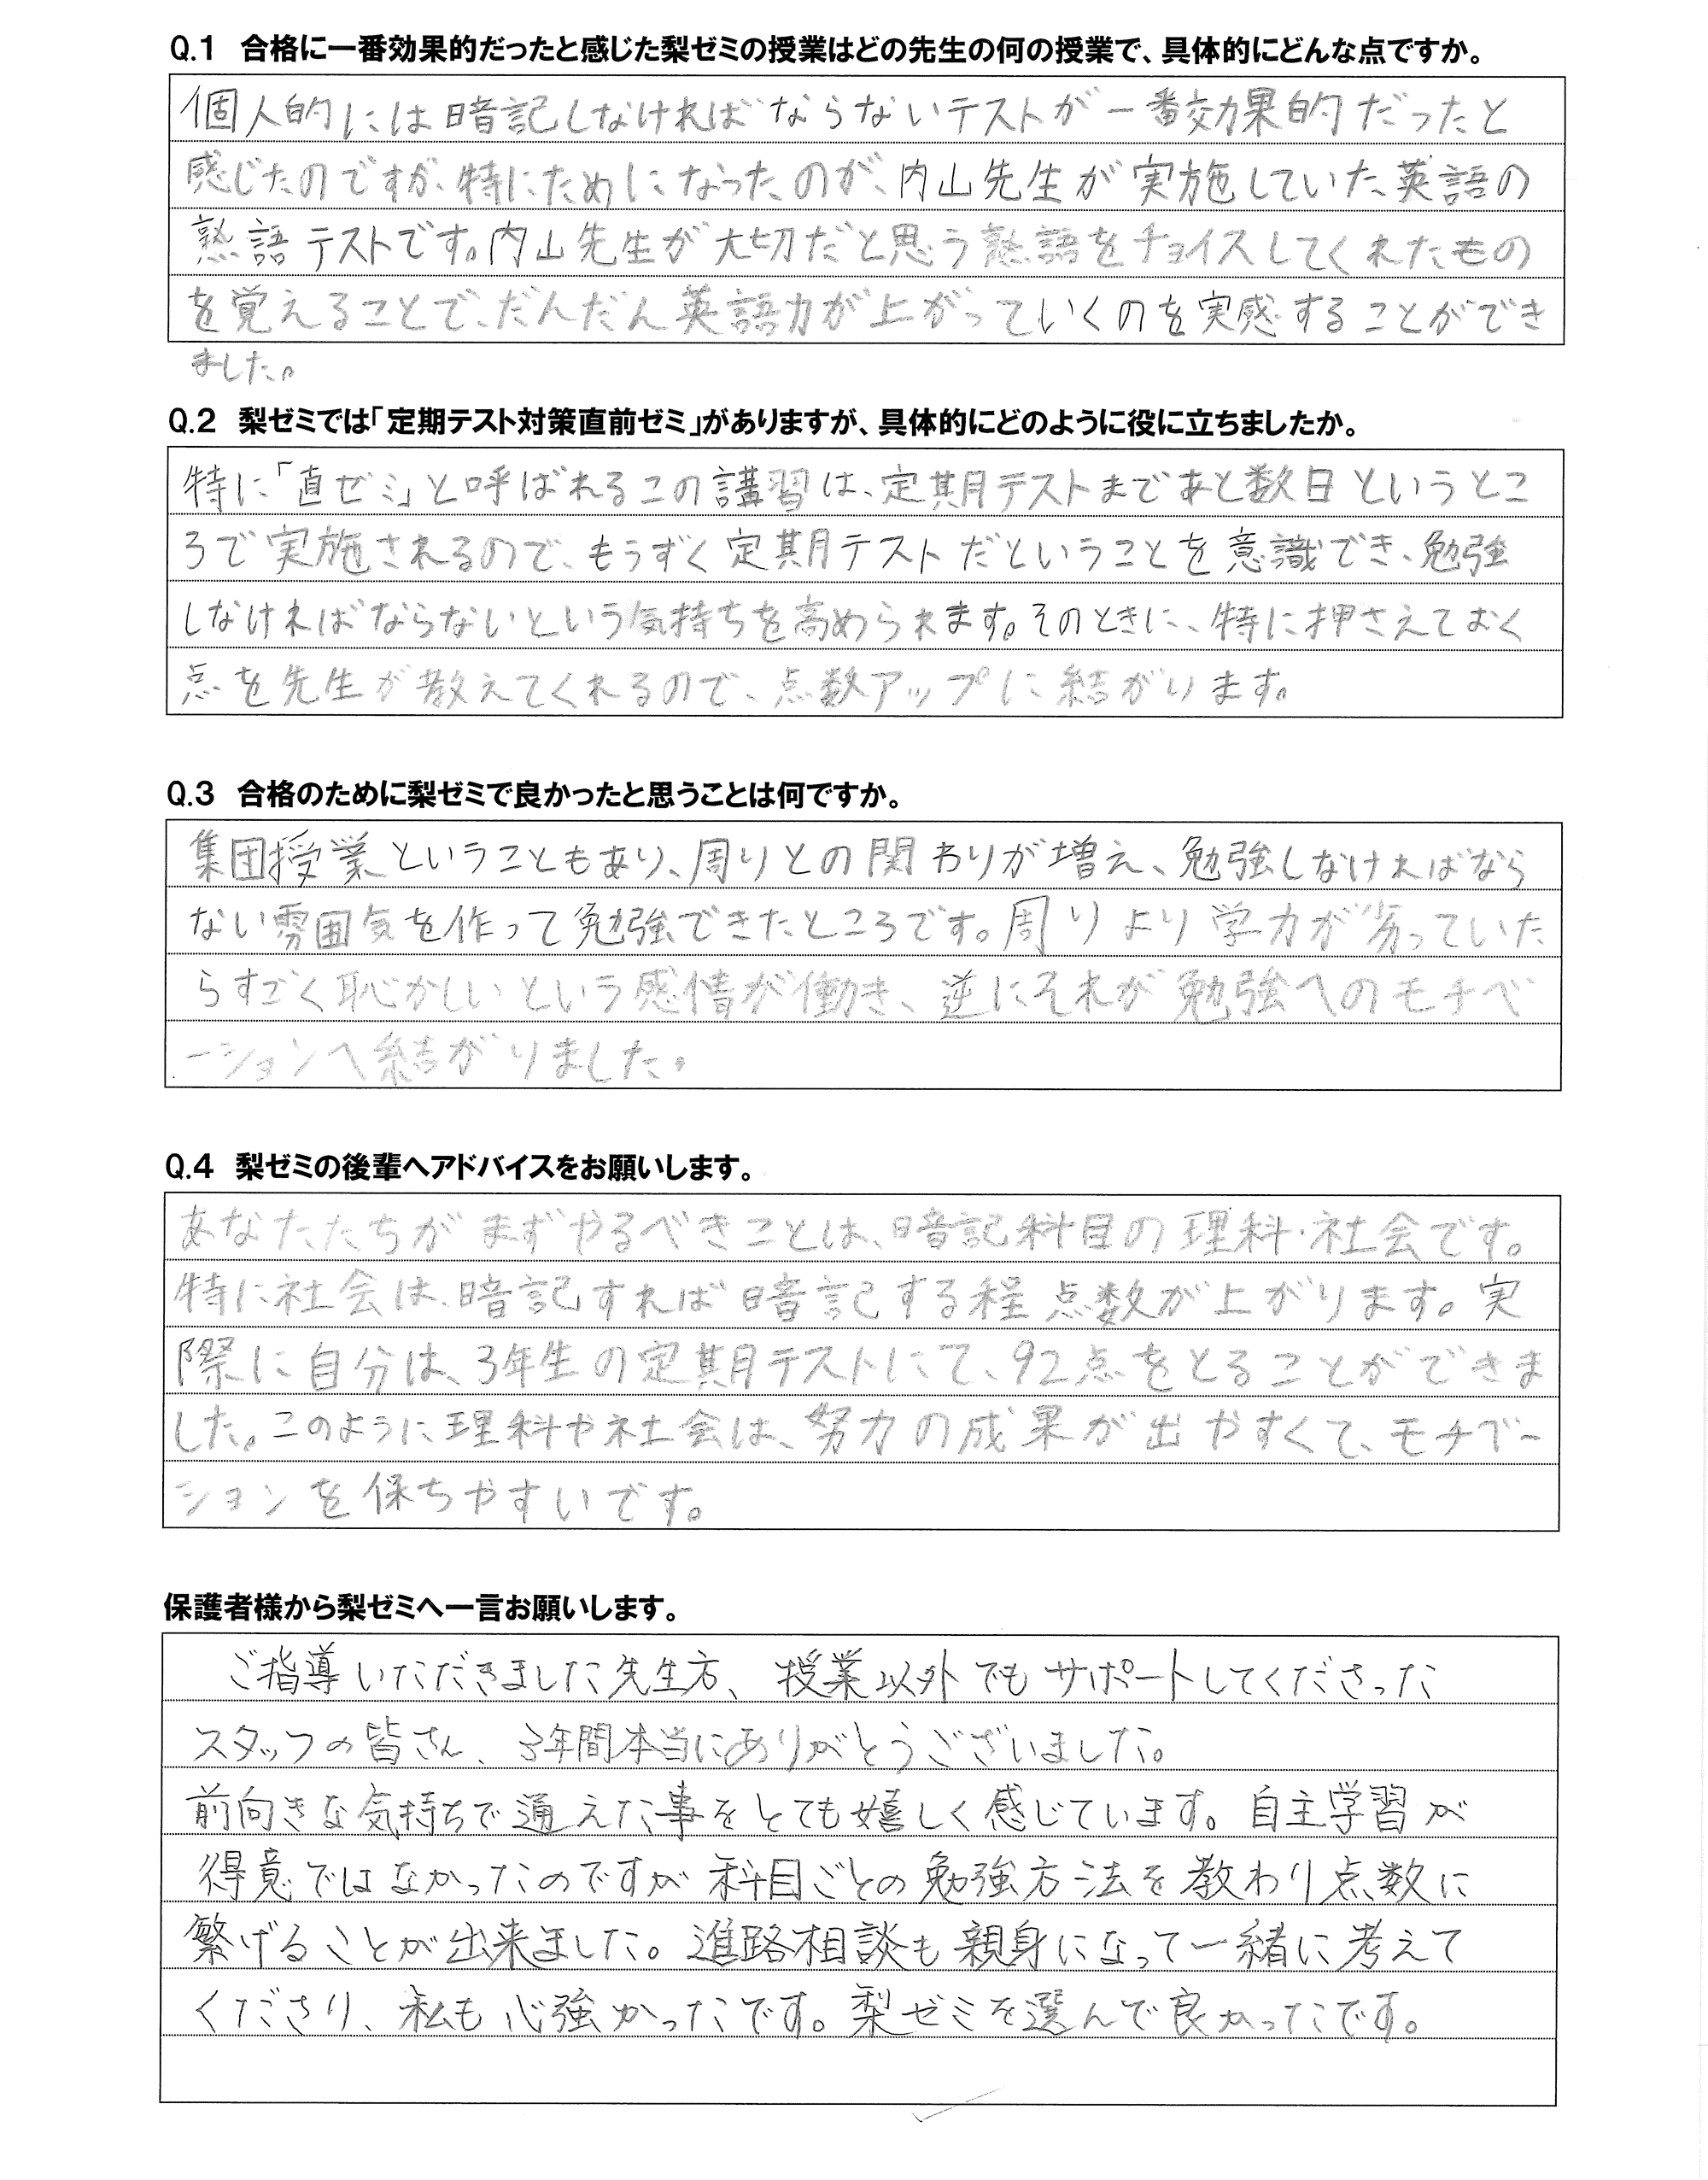 Q.1 合格に一番効果的だったと感じた梨ゼミの授業はどの先生の何の授業で、具体的にどんな点ですか。
個人的には暗記しなければならないテストが一番効果的だったと
感じたのですが、特にためになったのが、内山先生が実施していた、英語の
熟語テストです。内山先生が大切だと思う熟語をチョイスしてくれたもの
を覚えることで、だんだん英語力が上がっていくのを実感することができ
ました。
Q.2 梨ゼミでは「定期テスト対策直前ゼミ」がありますが、具体的にどのように役に立ちましたか。
特に「直ゼミ」と呼ばれるこの講習は、定期テストまであと数日というとこ
ろで実施されるので、もうすぐ定期テストだということを意識でき、勉強
しなければならないという気持ちを高められます。そのときに、特に押さえておく
点を先生が教えてくれるので、点数アップに結がります。
Q.3 合格のために梨ゼミで良かったと思うことは何ですか。
集団授業ということもあり、周りとの関わりが増え、勉強しなければなら
ない雰囲気を作って勉強できたところです。周りより学力が劣っていた
らすごく恥かしいという感情が働き、逆にそれが勉強へのモチベ
ーションへ結がりました。
Q.4 梨ゼミの後輩へアドバイスをお願いします。
あなたたちがまずやるべきことは、暗記科目の理科・社会です。
特に社会は、暗記すれば暗記する程点数が上がります。実
際に自分は、3年生の定期テストにて、92点をとることができま
した。このように理科や社会は、努力の成果が出やすくて、モチベー
ションを保ちやすいです。
保護者様から梨ゼミへ一言お願いします。
ご指導いただきました先生方、授業以外でもサポートしてくださった
スタッフの皆さん、3年間本当にありがとうございました。
前向きな気持ちで通えた事をとても嬉しく感じています。自主学習が
得意ではなかったのですが科目ごとの勉強方法を教わり点数に
繋げることが出来ました。進路相談も親身になって一緒に考えて
くださり、私も心強かったです。梨ゼミを選んで良かったです。